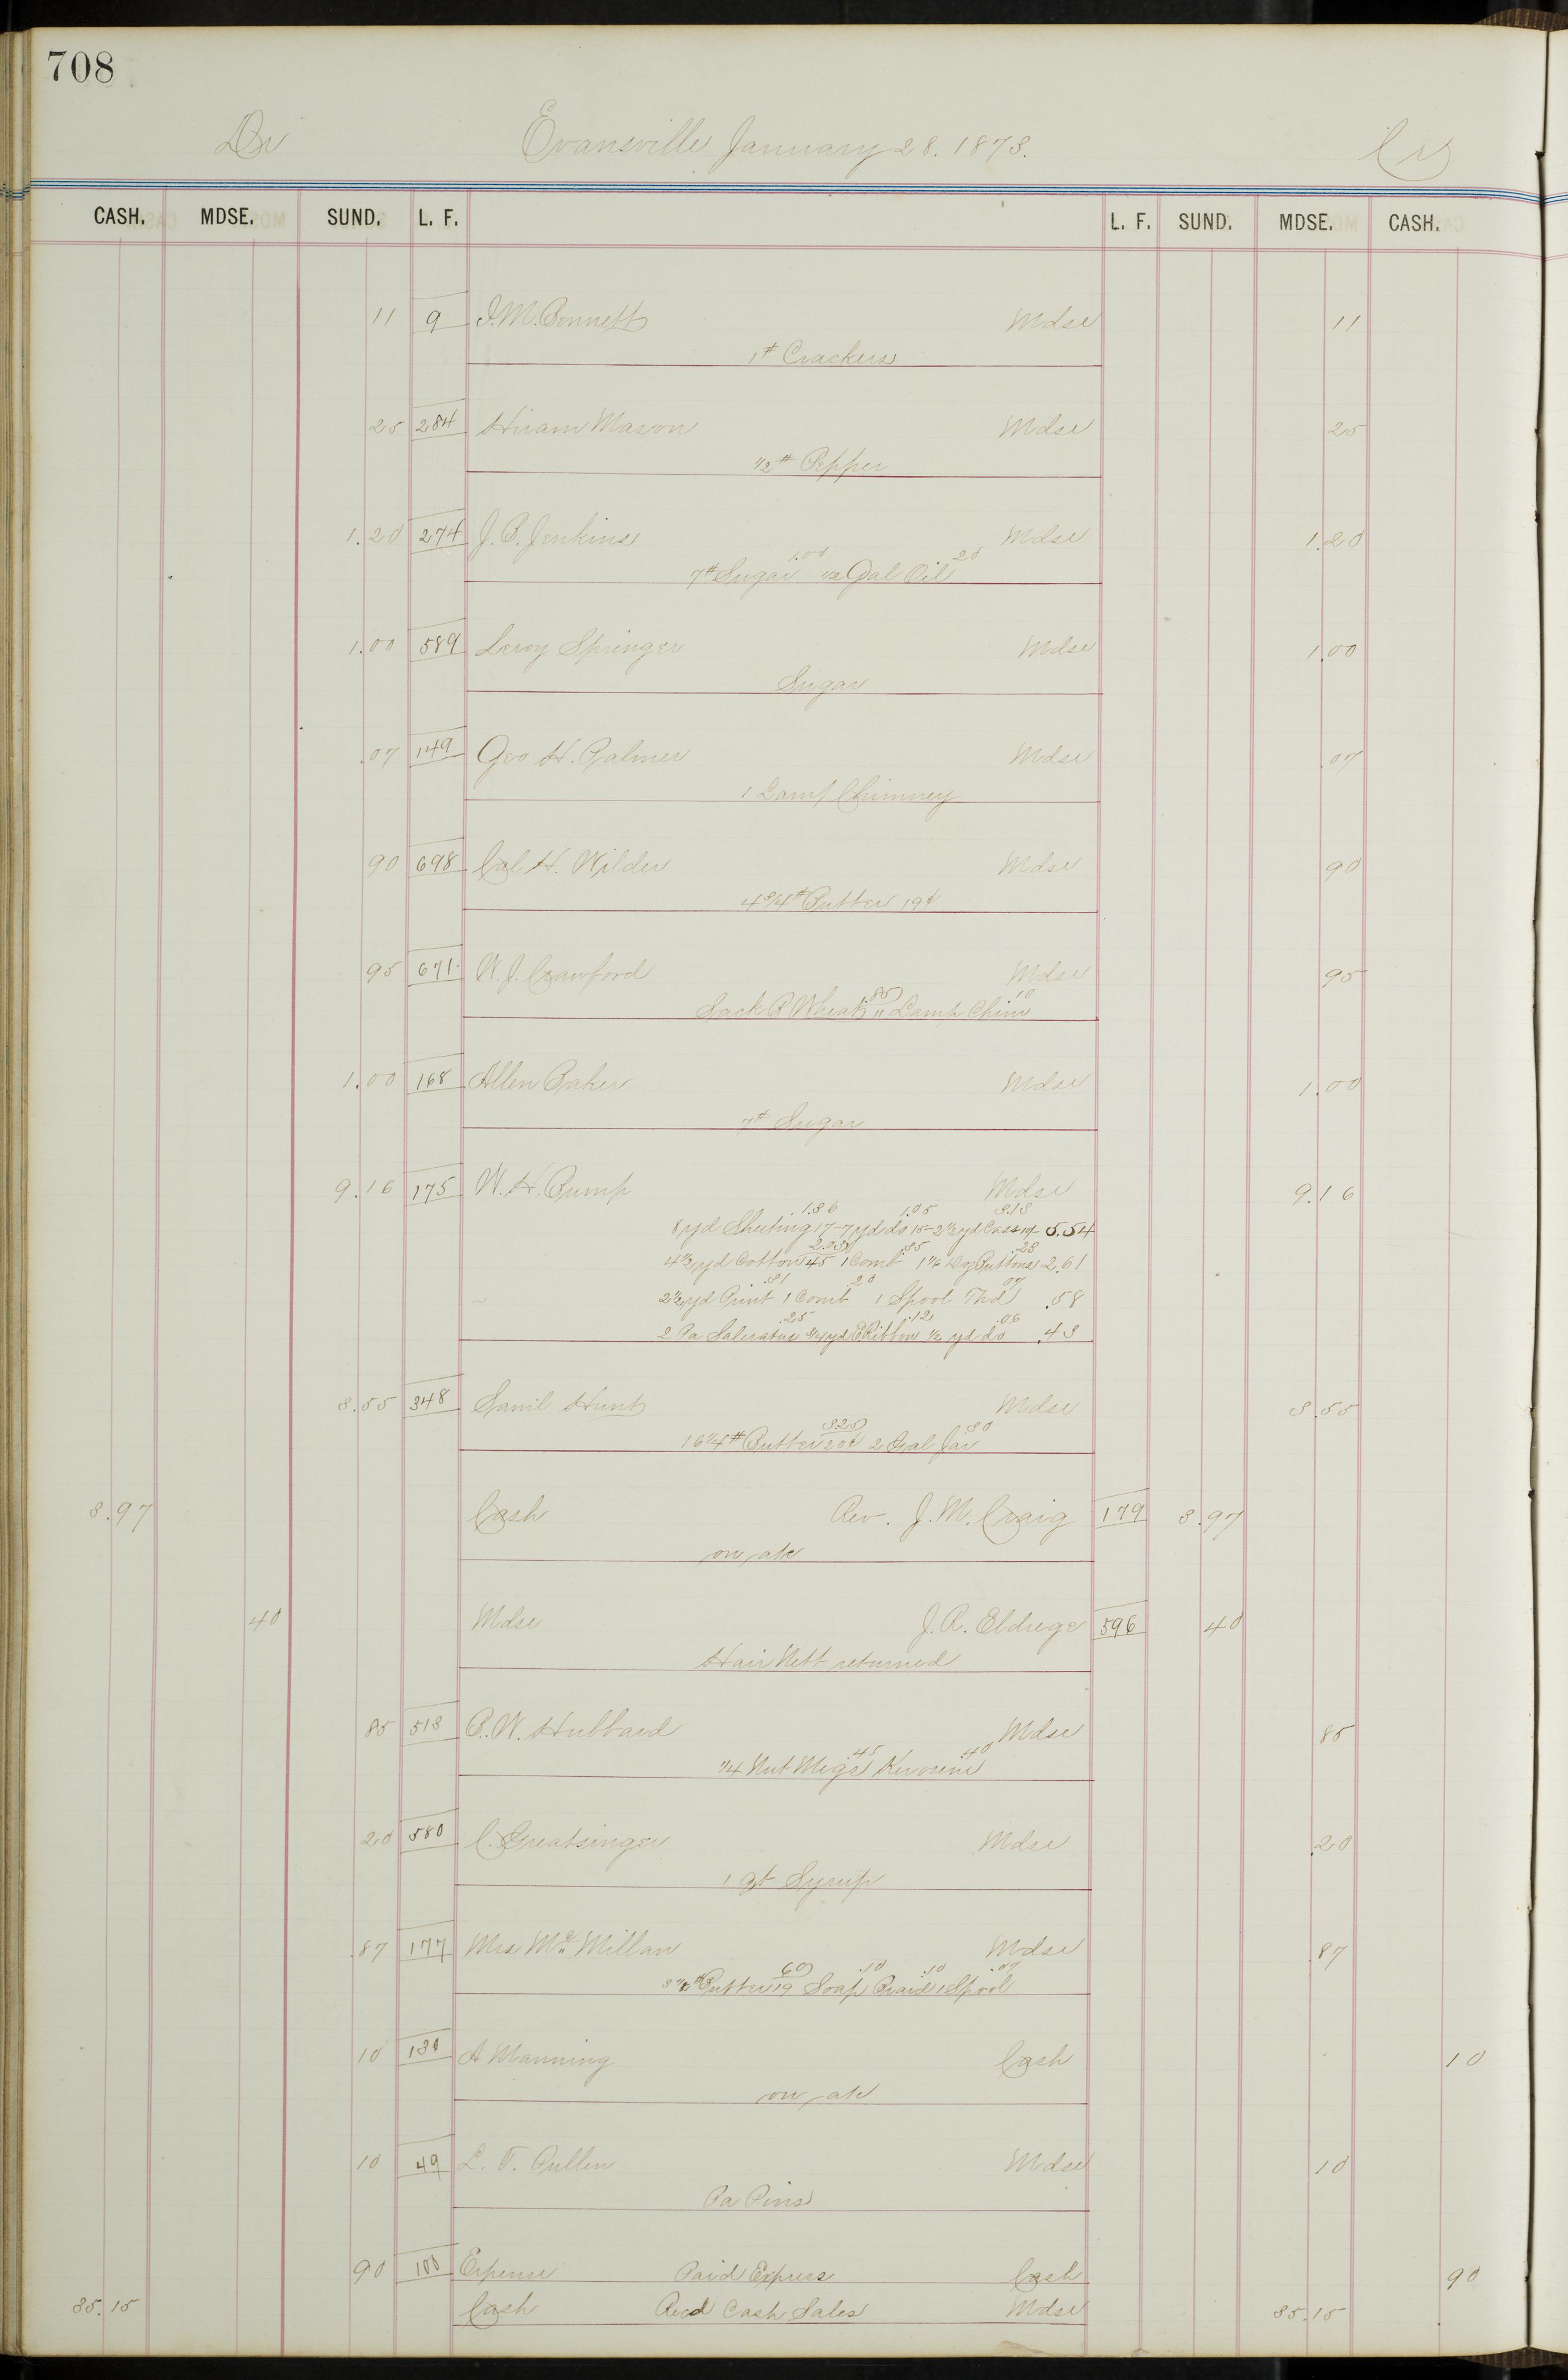 708
Dr Evansville January 28. 1873. Cr
CASH. MDSE. SUND. L. F. L. F. SUND. MDSE. CASH.
11 9 J. M. Bennett Mdse 11
1# Crackers
25 284 Hiram Mason Mdse 25
1/2# Pepper
1.20 274 J. B. Jenkins Mdse 1.20
1.00 20
7# Sugar 1/2 Gal Oil
1.00 589 Leroy Springer Mdse 1.00
Sugar
.07 149 Geo H. Palmer Mdse .07
1 Lamp Chimney
90 698 Cal H. Wilder Mdse 90
4 3/4# Butter 19¢
95 671 W. J. Crawford Mdse 95
.85 10
Sack B Wheat " Lamp Chim
1.00 168 Allen Baker Mdse 1.00
7# Sugar
9.16 175 W. H. Bump Mdse 9.16
1.36 1.05 3.13
8 yd Sheeting 17 - 7 yd do 15 - 2 1/2 yd 5.54
2.03 .35 .23
4 1/2 yd Cotton 45 1 Comb 1 1/6 Doz Buttons 2.61
.31 .20 07
2 1/2 yd Print 1 Comb 1 Spool Thd .58
.25 .12 .06
2 Pa Saleratus 3/4 yd Ribbon 1/2 yd do .43
3.55 348 Saml Hunt Mdse 3.55
3.25 .30
16 1/4# Butter 20¢ 2 Gal Jar
3.97 Cash Rev. J. M. Craig 179 3.97
on a/c
40 Mdse J. R. Eldrege 596 40
Hair Nett returned
85 513 B. W. Hubbard Mdse 85
.45 .40
1/4 Nut Megs Kerosene
20 580 C. Greatsinger Mdse .20
1 qt Syrup
.87 177 Mrs Mc Millan Mdse .87
60 .10 .10 .07
Butter 19 Soap Braid 1 Spool
10 130 A Manning Cash 10
on a/c
10 49 L. T. Pullen Mdse 10
Pa Pins
90 100 Expense Paid Express Cash 90
35.15 Cash Recd Cash Sales Mdse 35.15